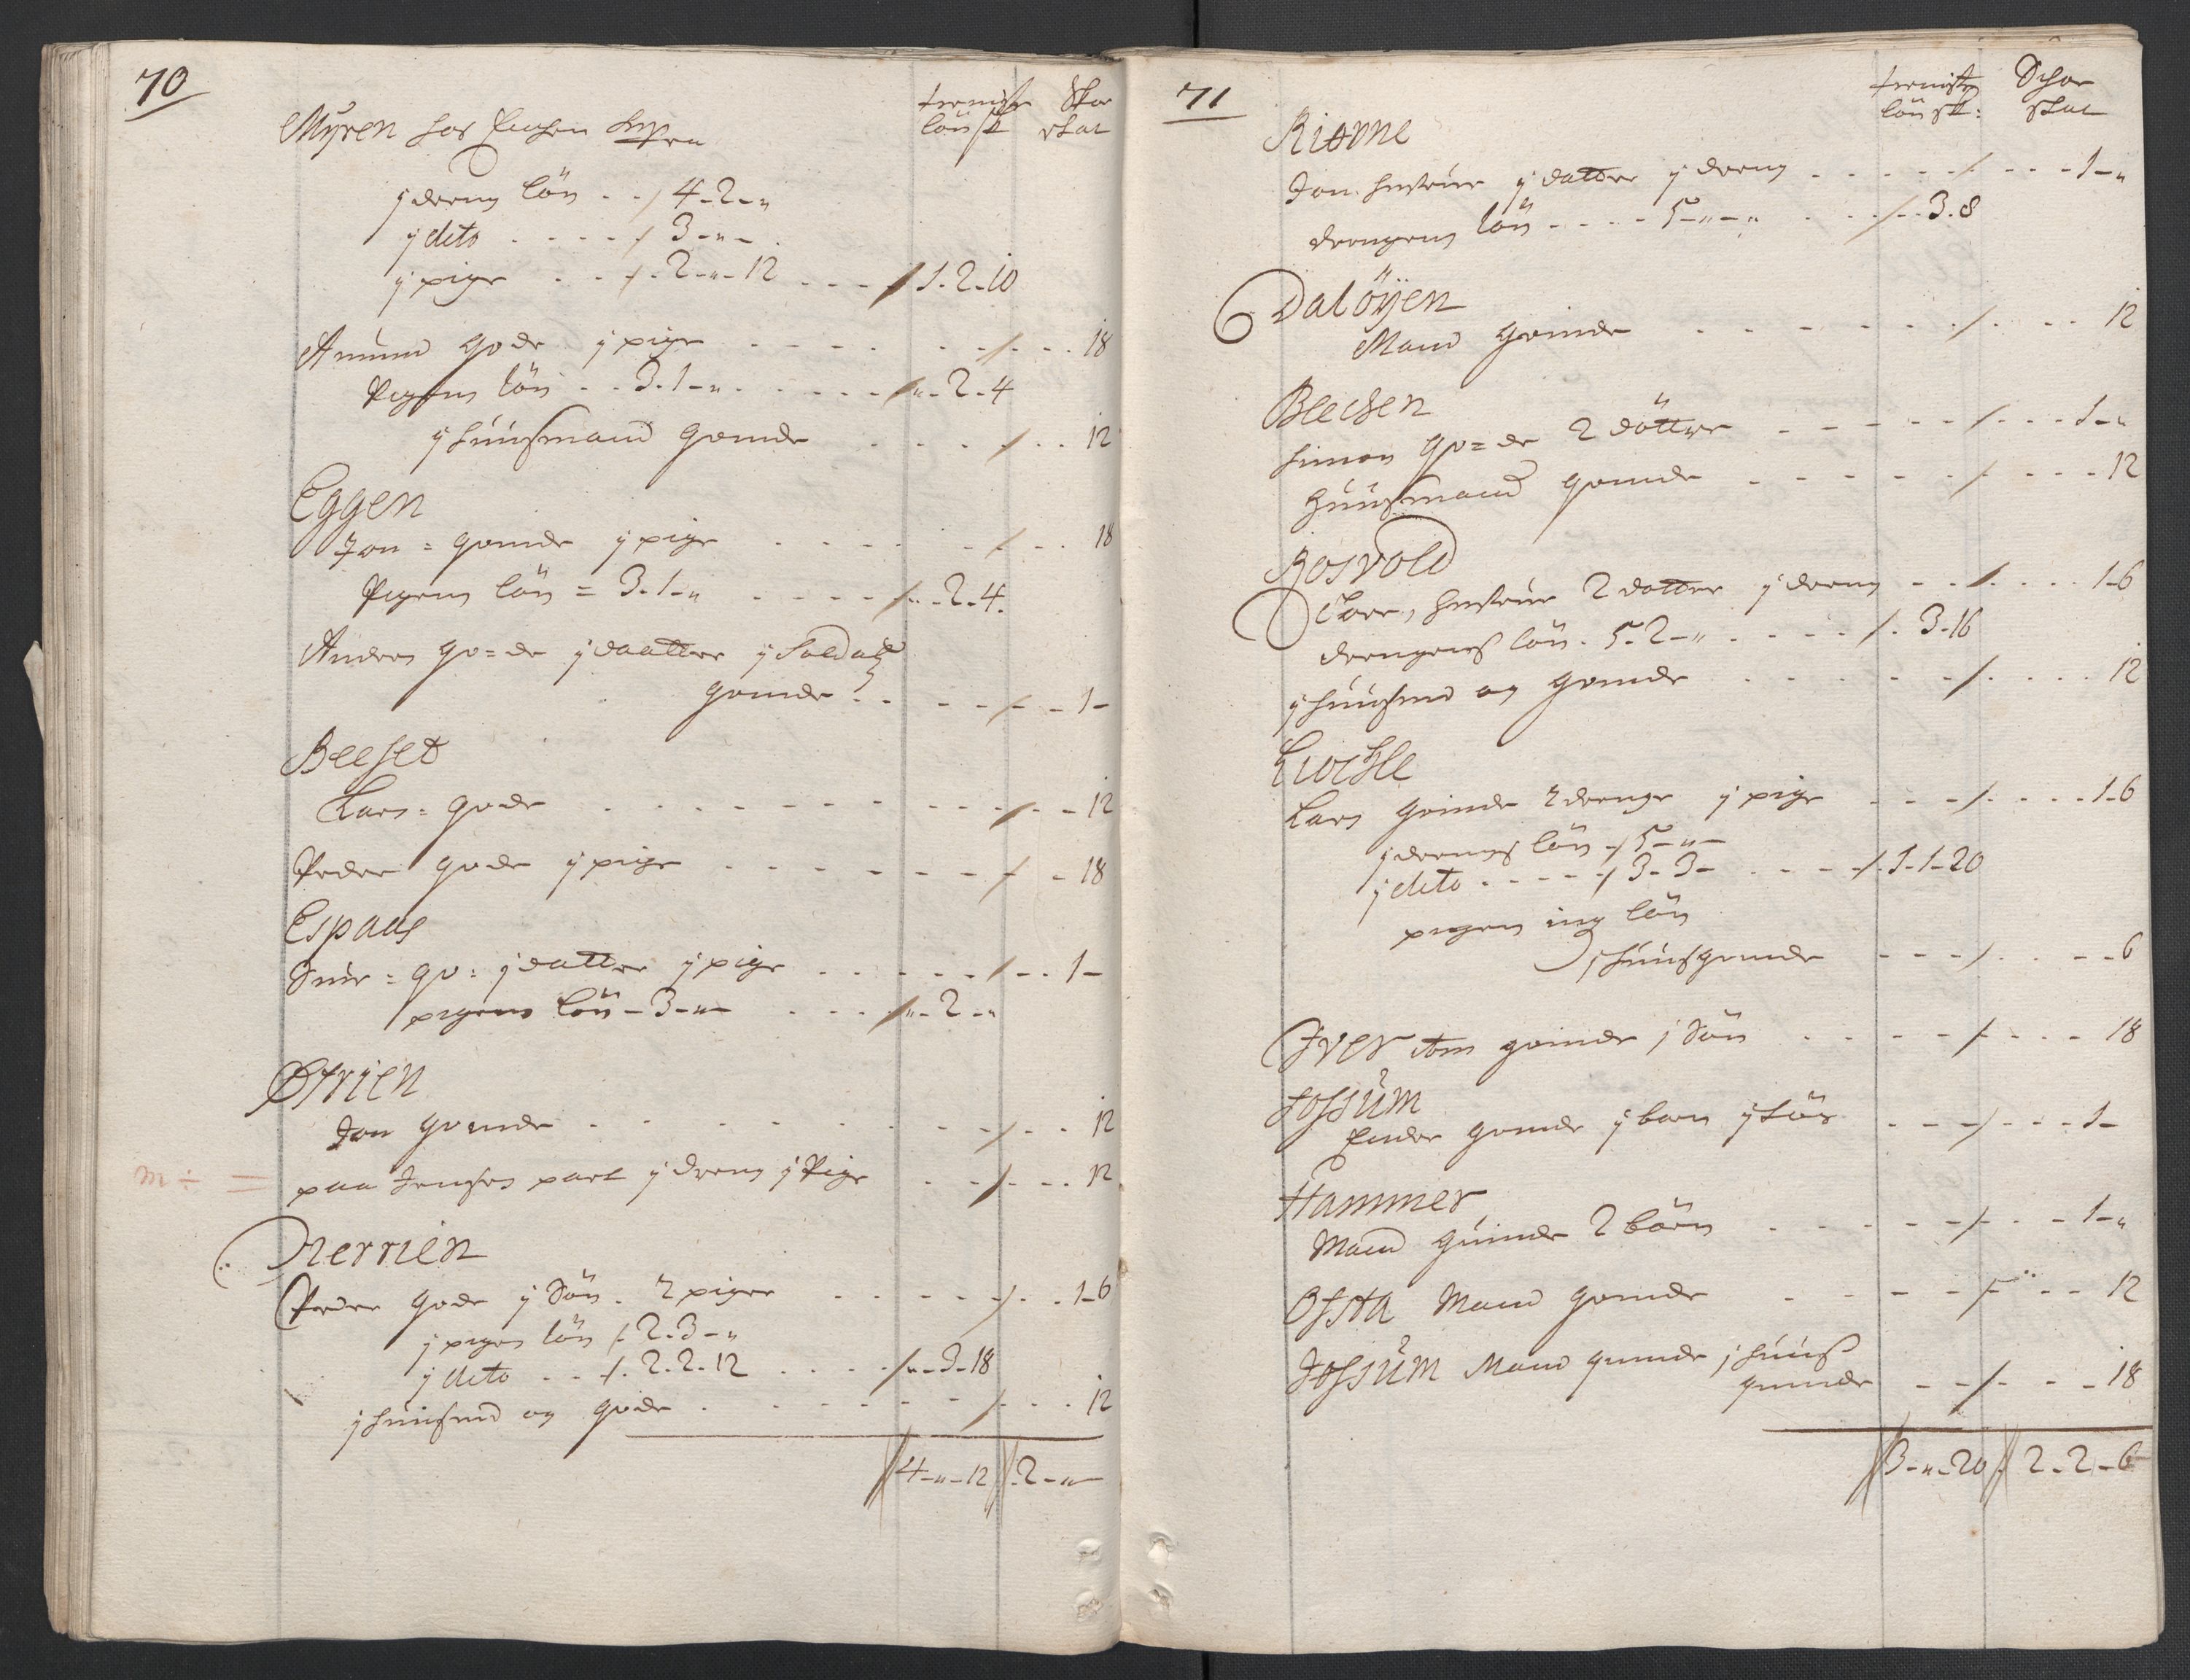 70
Myren hos
tieniste Skoe
lön sk skat
j dreng lön . . / 4-2-"
j dito . . . . / 3-"-
j pige . . / . 2-"-12 . . . / 1.2.10
Amund qvde j pige . . . . . . / . . . 18
Pigens lön . . 3.1-" . . . . . / "-2-4
j huusmand qvinde . . . . / . . 12
Eggen
Jon = qvinde j pige . . . . . / . . 18
Pigens lön = 3.1-" . . . . / "-2-4.
Anders qv=de j daatter j Soldatz
qvinde . . - - / - - 1-
Beeset
Lars = qvde . . . . . . . . / - - 12
Peder qvde j pige . . . . . - / - 18
Espaas
Siur = qv: j datter j pige . . . . . / - . 1-
pigens lön - 3-"- . . . / "-2-"
Østvien
Jon qvinde . . . . . . . / . . . 12
m ÷ = paa Jenses part j dreng j Pige . . / . . . 12
Nervien
Peder qvde j Sön . 2 piger . . . . . / . . 1-6
j piges lön / . 2-3-"
j dito . . / . 2.2.12 . . . . / "-3-18
j huusmd og qvde . . . . . . / . . . 12
4-"-12 2-"-
71
tieniste Schoe
lön sk: skat
Riørne
Jon hustrue j datter j dreng . . . . . / . . . 1-"
drengens lön . . . . 5-"-" . . . / . . 3.8
Daløyen
Mand qvinde . . . . . . / . . . 12
Beechen
Simon qv=de 2 dötter . . . . . / . . . 1-"
Huusmand qvinde . . . . . / . . . 12
Rosvold
Tore, hustrue 2 dotter j dreng . . / . . . . 1-6
drengens lön . 5.2-" . . . . / . 3-16
j huusmd og qvinde . . . . . / . . . . 12
Lars qvinde 2 drenge j pige . . . / . . . . 1-6
j drengs lön / 5-"-
j dito . . . . / 3-3- . . . . / 1-1-20
pigen ing lön
j huusqvinde . . . / . . . - 6
Iver ibm qvinde j Sön . . . . . / . . . 18
Jossum
Peder qvinde j barn . . . / . . . 1-
Hammer
Mand qvinde 2 börn . . . . . / . . . 1-"
Ossta Mand qvinde . . . . . / . . . 12
Jossum Mand qvinde j huus
qvinde . . / . . . 18
3-"-20 2-2-6